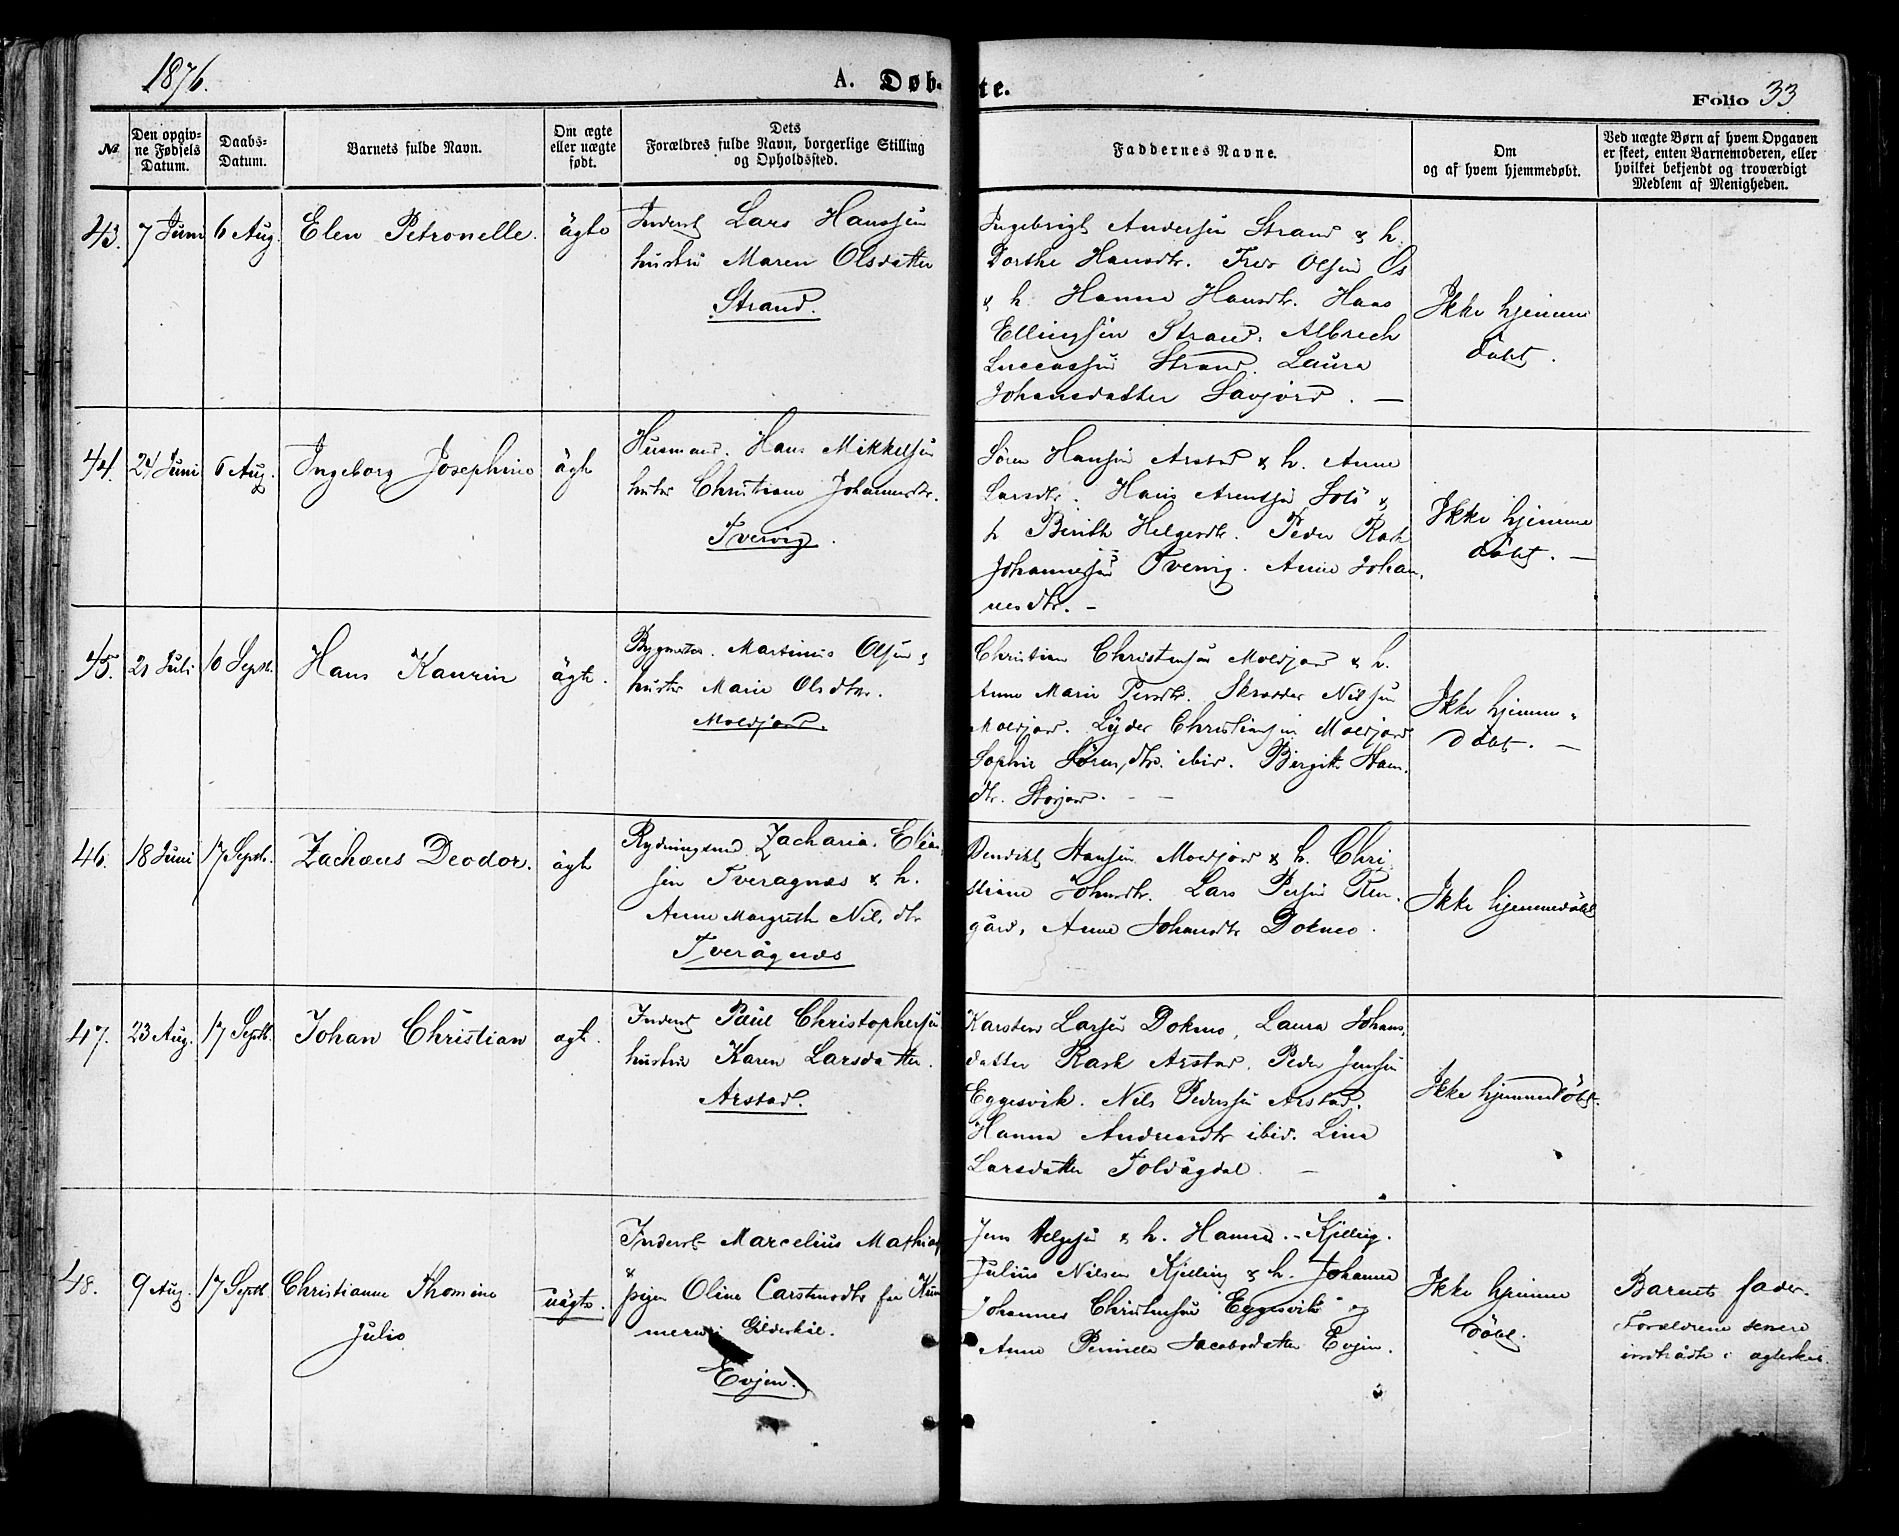 1876.
A. Døb-
te.
Folio 33
№
Den opgiv-
ne Fødsels
Datum.
Daabs-
Datum.
Barnets fulde Navn.
Om ægte
eller uægte
født.
Dets
Forældres fulde Navn, borgerlige Stilling
og Opholdssted.
Faddernes Navne.
Om
og af hvem hjemmedøbt.
Ved uægte Børn af hvem Opgaven
er skeet, enten Barnemoderen, eller
hvilket bekjendt og troværdigt
Medlem af Menigheden.
43. 7 Juni 6 Aug. Elen Petronelle. ägte
Inderst Lars Hanssen
hustru Maren Olsdatter
Strand.
Ingebrigt Andersen Strand & h.
Dorthe Hansdtr. Olsen Os
& h. Hanna Hansdtr. Hans
Ellingsen Strand. Albrech
Luccassen Strand. Laura
Johansdatter Savjord. —
Ikke hjemme
döbt.
44. 24 Juni 6 Aug. Ingeborg Josephine ägte
Husmand. Hans Mikkelsen
hustru Christiane Johannesdtr.
Tvervig.
Sören Hansen Arstad & h. Anne
Larsdtr. Hans Arentsen Solö &
h Berith Helgesdtr. Peder Rask
Johannessen Tvervig. Anne Johan-
nesdtr. —
Ikke hjemme
döbt. —
45. 21 Juli 10 Septb. Hans Kaurin ägte.
Bygmster. Martinus Olsen &
hustru Marie Olsdtr.
Moldjord.
Christian Christensen Moldjord & h.
Anne Marie Persdtr. Skrædder Nilsen
Moldjord. Lyder Christensen Moldjord
Sophie Sörensdtr. ibid. Birgit Han-
dtr. Storjord. — —
Ikke hjemme-
döbt. —
46. 18 Juni 17 Septb. Zachæus Deodor. ägte
Rydningsmd Zacharias Elia-
sen Tveragnæs & h.
Anne Margreth Nilsdtr
Tverågnæs
Bendikt Hansen Moldjord & h. Chri-
stiane Johnsdtr. Lars Persen
gård, Anne Johansdtr Doknes.
Ikke hjemmedöbt
47. 23 Aug. 17 Septb. Johan Christian ægte.
Inderst Paul Christophersen
hustru Karen Larsdatter.
Arstad.
Karsten Larsen Doknes, Laura Johans-
datter Rask Arstad, Peder Jensen
Eggesvik. Nils Pedersen Arstad.
Hanna Andreasdtr ibid. Lina
Larsdatter Toldågdal. —
Ikke hjemmedöbt.
48. 9 Aug. 17 Septb. Christianne Thomine
Julie
uägte.
Inderst Marcelius Mathias-
&
pigen Oline Carstensdtr
Gilderskål.
Evjen.
Jens Helgesen & h. Hanna Kjelling.
Julius Nilsen Kjelling & h. Johanna
Johannes Christensen Eggesvik og
Anne Pernille Jacobsdatter Evjen.
Ikke hjemme
döbt.
Barnets fader.
Forældrene senere
indtrådte i ægteskab.